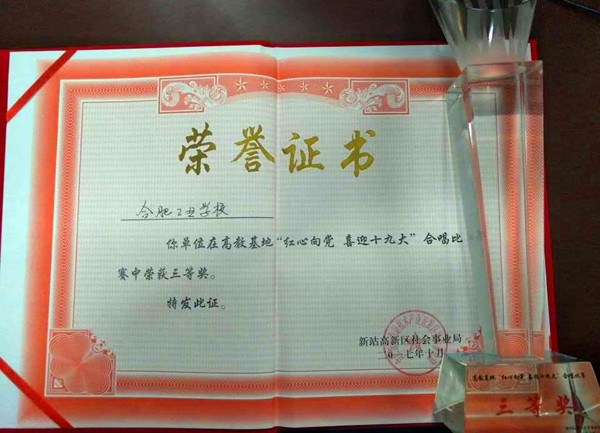 荣誉证书
合肥工业学校
你单位在高教基地“红心向党 喜迎十九大”合唱比
赛中荣获三等奖。
特发此证。
新站高新区社会事业局
一七年十月
高教基地“红心向党 喜迎十九大”合唱比赛
三等奖